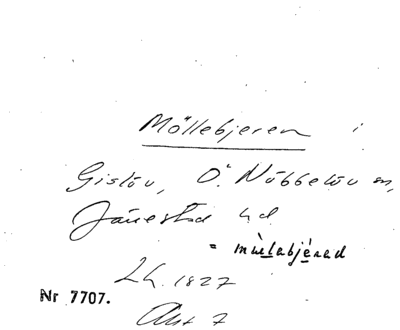 Möllebjeren i
Gislöv, Ö. Nöbbelöv sn,
Järrestad hd
= mùlabjèrad
Lh. 1827
Nr 7707.